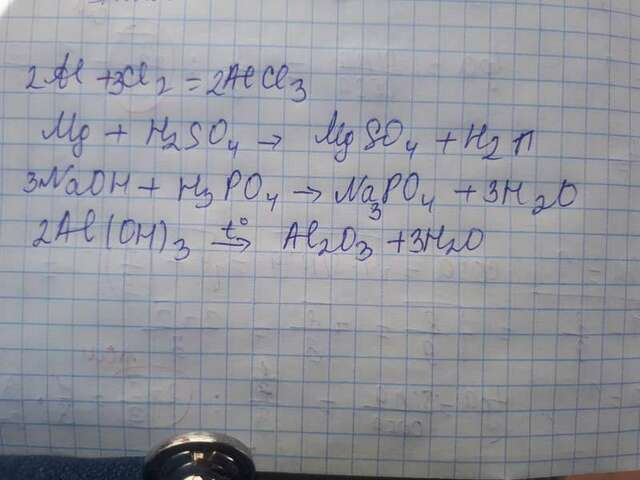 2Al + 3Cl2 = 2AlCl3
Mg + H2SO4 → MgSO4 + H2↑
3NaOH + H3PO4 → Na3PO4 + 3H2O
2Al(OH)3 t°→ Al2O3 + 3H2O